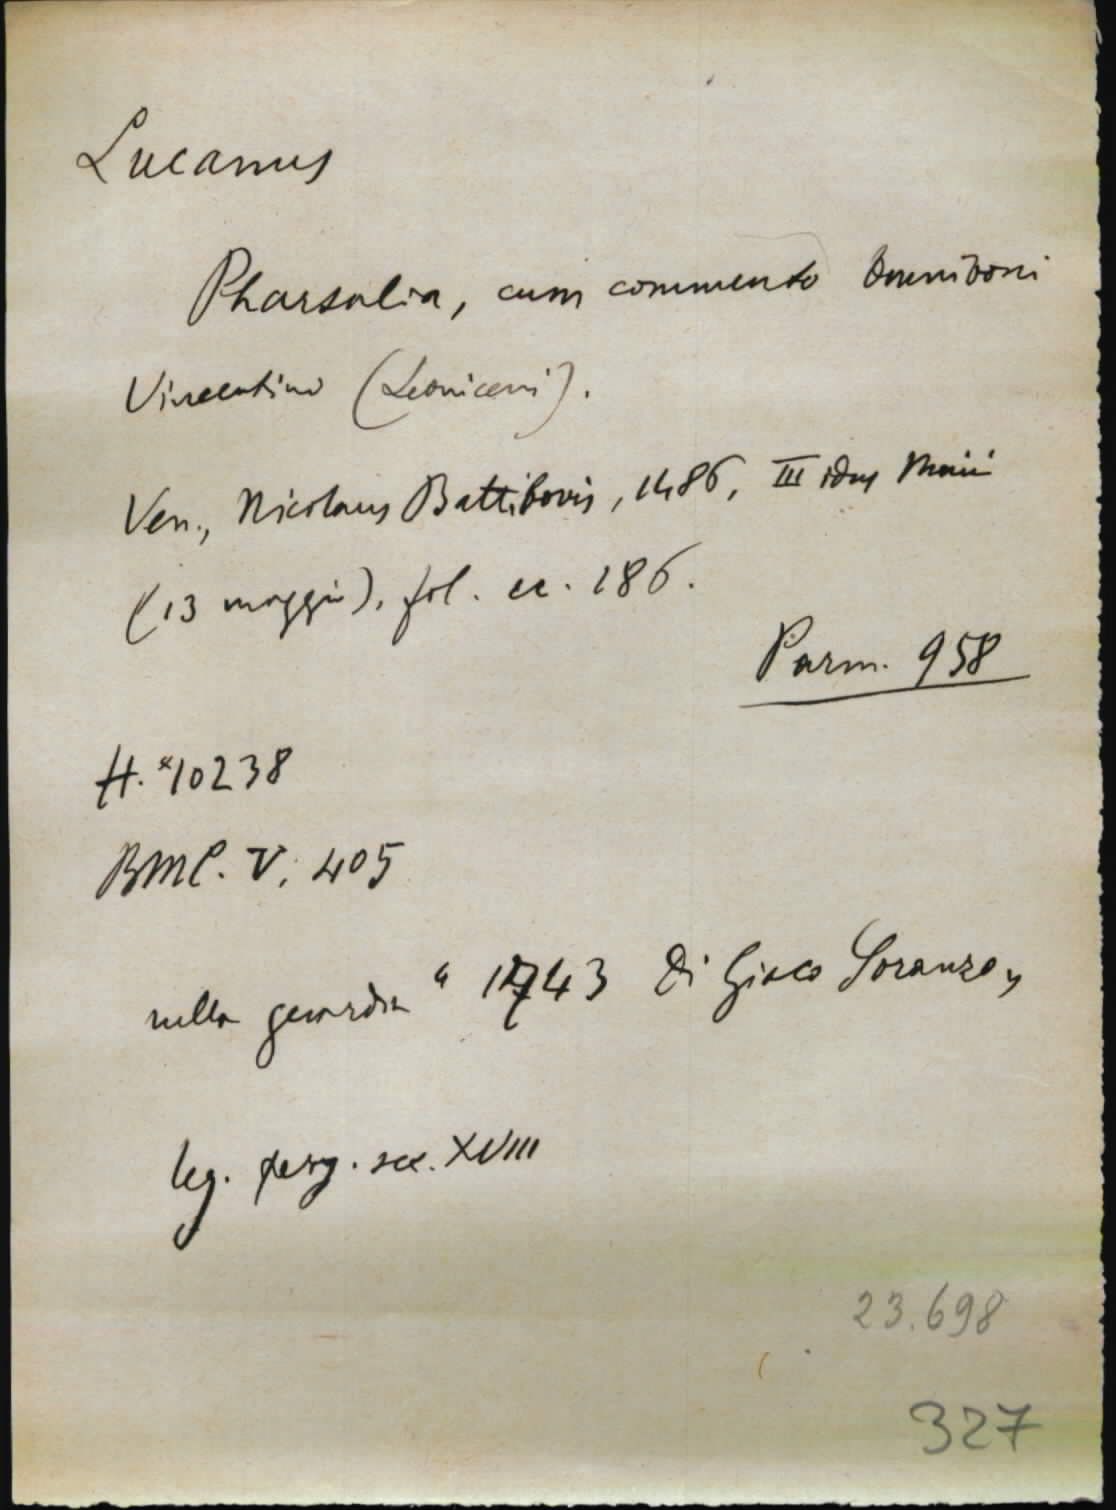 Lucanus
Pharsalia, cum commento Omniboni
Vincentino (Leoniceni).
Ven., Nicolaus Battibovis, 1486, III idus Maii
(13 maggio), fol. cc. 186.
Parm. 958
H. *10238
BMC. V. 405
nella guardia " 1743 Di Giaco Soranzo "
leg. perg. sec. XVIII
23.698
327